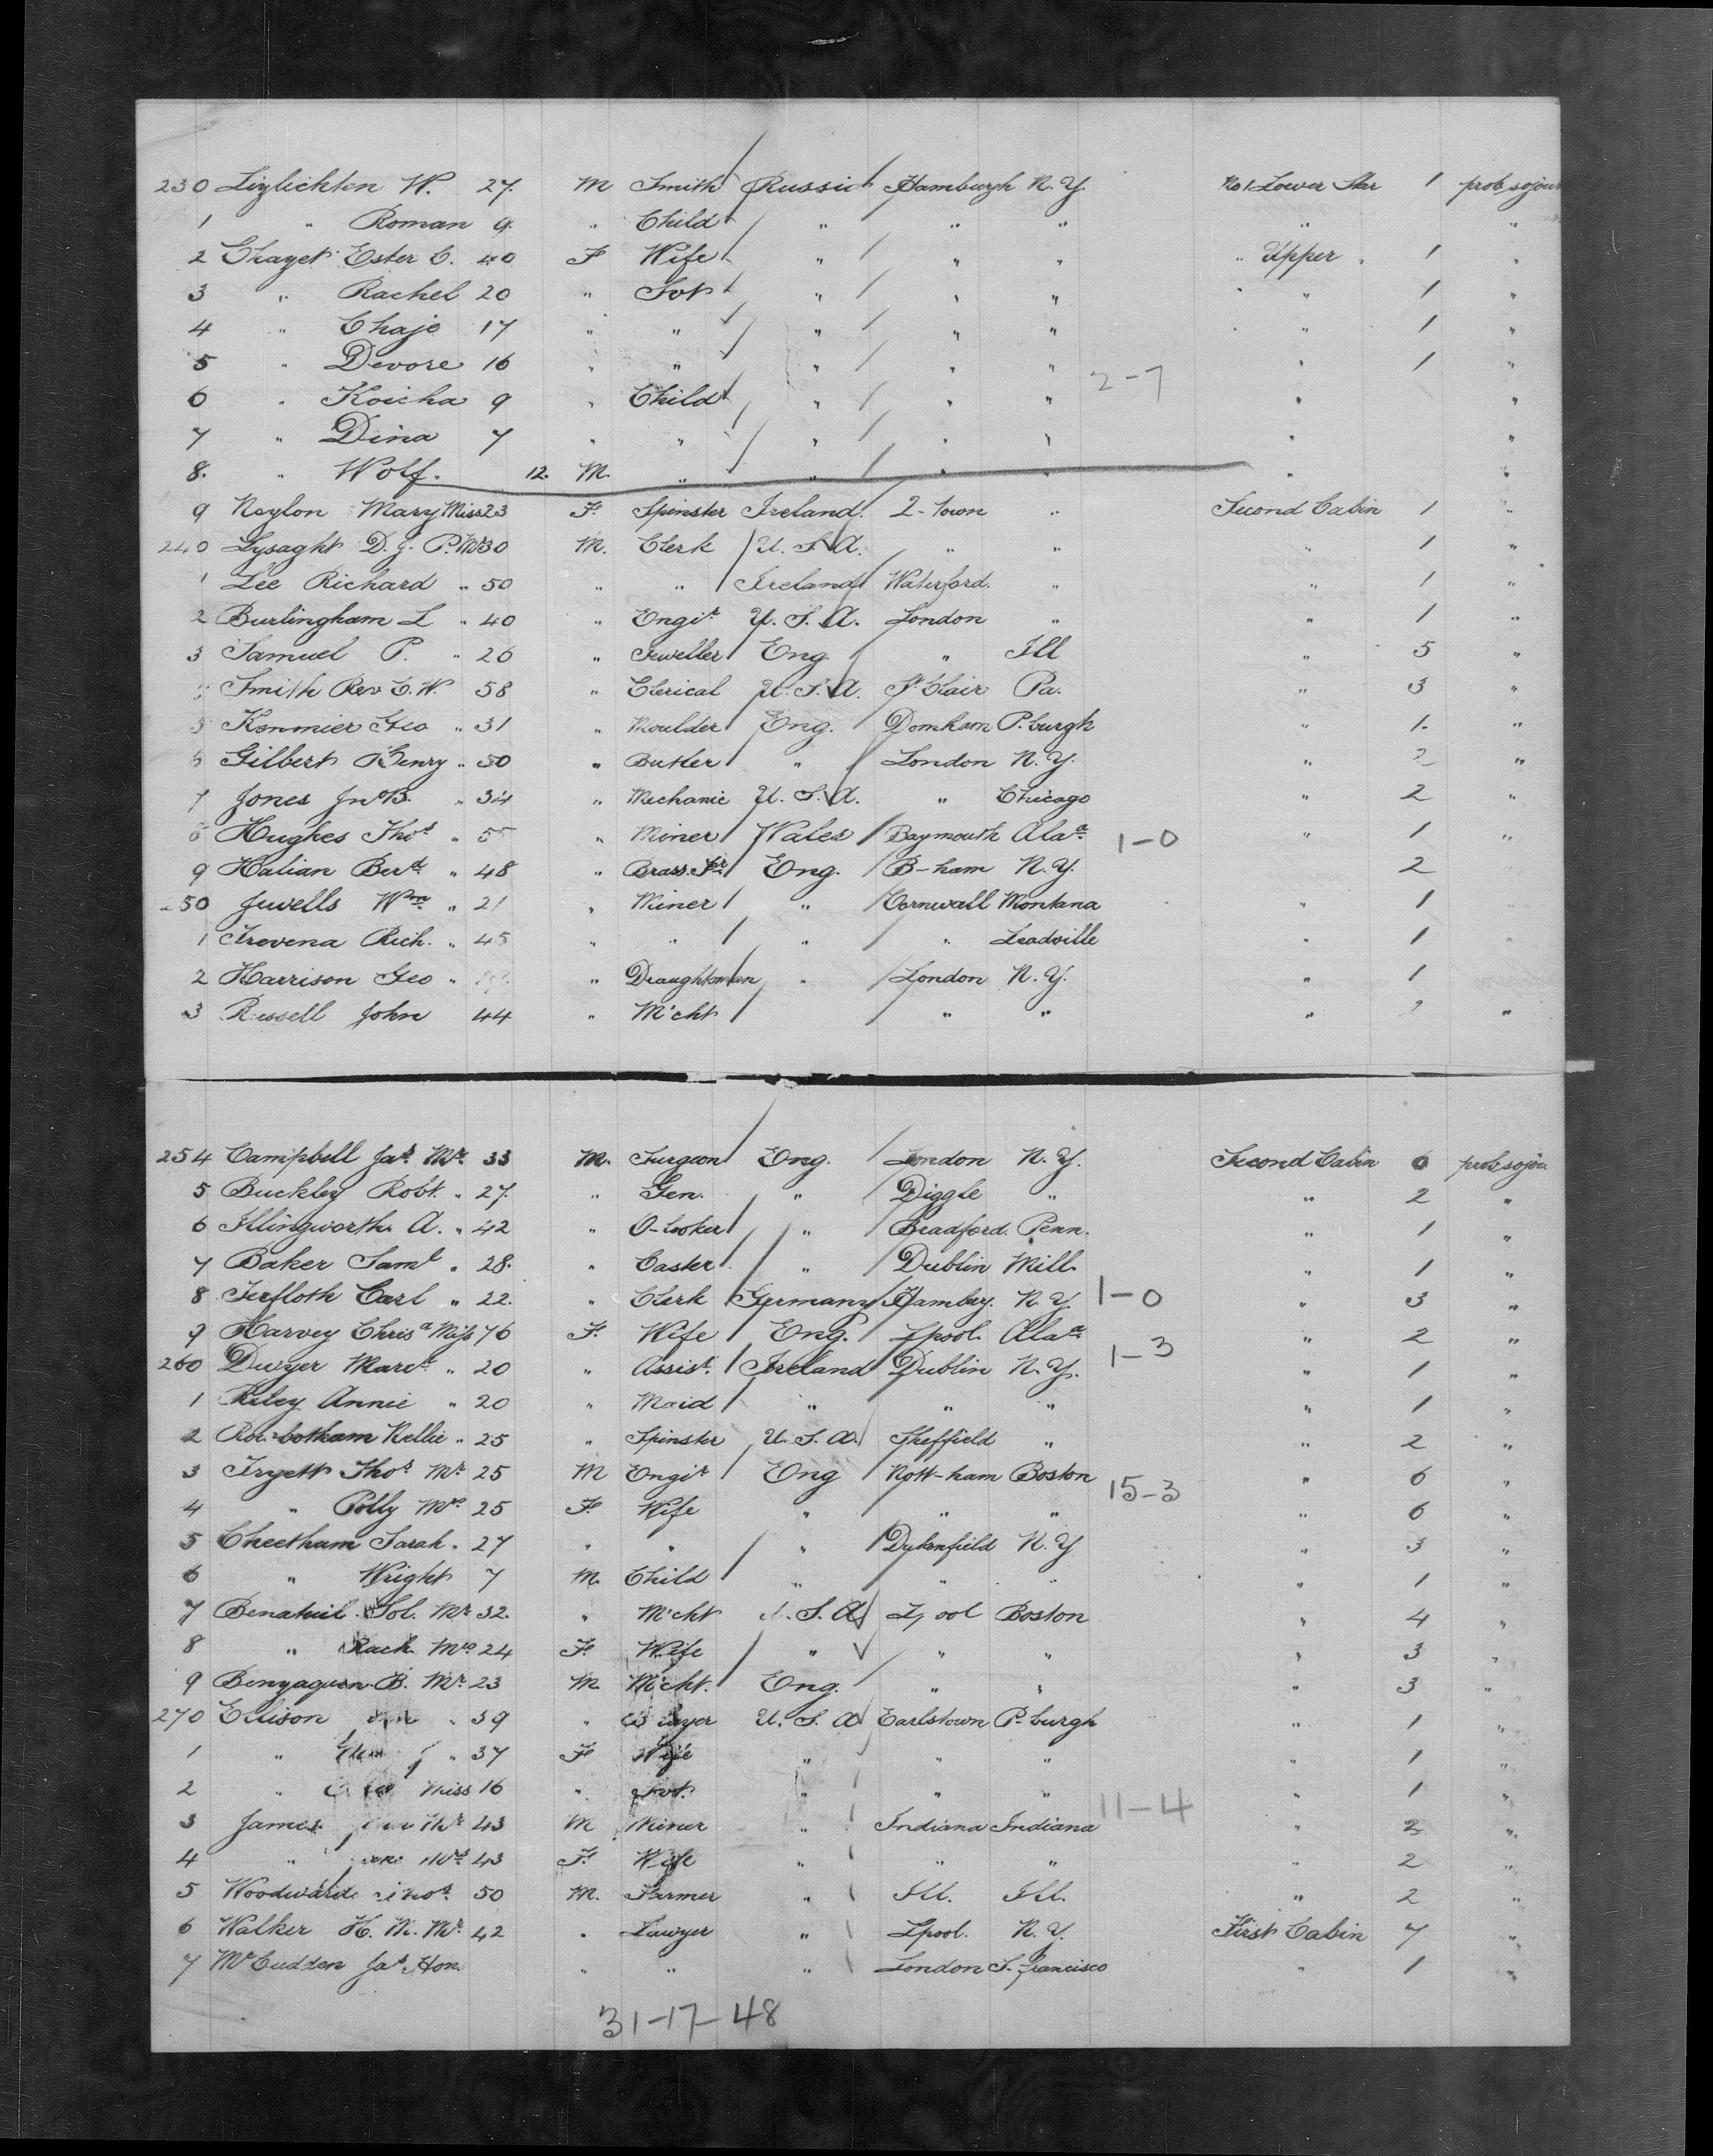 230 Lizlichten W. 27. M Smith Russia Hamburgh N.Y. No 1 Lower Star 1 prob sojour
1 " Roman 9. " Child " " " " "
2 Chayet Ester C. 40 F Wife " " " " Upper " 1 "
3 " Rachel 20 " Svt " " " " " 1 "
4 " Chaje 17 " " " " " " " 1 "
5 " Devore 16 " " " " " " 1 "
6 " Koicha 9 " Child " " " " "
2-7
7 " Dina 7 " " " " " " "
8. " Wolf. 12. M. " " " " " "
9 Neylon Mary Miss 23 F. Spinster Ireland. Q-Town " Second Cabin 1 "
240 Lysaght D. J. P. Mr 30 M. Clerk U.S.A. " " " 1 "
1 Lee Richard " 50 " " Ireland Waterford. " " 1 "
2 Burlingham L " 40 " Engir U.S.A. London " " 1 "
3 Samuel P. " 26 " Jeweller Eng. " Ill " 5 "
Smith Rev C. W. 58 " Clerical U.S.A. St Clair Pa. " 3 "
5 Kenmier Geo " 31 " Moulder Eng. P.burgh " 1. "
6 Gilbert Henry " 50 " Butler " London N.Y. " 2 "
7 Jones Jno B. " 34 " Mechanic U.S.A. " Chicago " 2 "
8 Hughes Thos " 5 " Miner Wales Baymouth Alaa " 1 "
1-0
9 Halian Bert " 48 " Brass. Fr Eng. B-ham N.Y. 2
250 Jewells Wm " 21 " Miner " Cornwall Montana " 1 "
1 Trevena Rich. " 45 " " " " Leadville " 1 "
2 Harrison Geo " " Draughtsman " London N.Y. " 1 "
3 Russell John 44 " M'cht " " " "
254 Campbell Jas. Mr. 33 M. Surgeon Eng. London N.Y. Second Cabin 6 prob sojou.
5 Buckley Robt. " 27. " Gen. " Diggle " " 2 "
6 Illingworth A. " 42 " O-looker " Bradford. Penn. " 1 "
7 Baker Saml " 28. " Caster " Dublin Mill. " 1 "
8 Terfloth Carl " 22. " Clerk Germany Hambg. N.Y. " 3 "
1-0
9 Harvey Chrisa Miss 76 F. Wife Eng. Lpool. Alaa " 2 "
1-3
260 Dwyer Mart " 20 " Assist. Ireland Dublin N.Y. " 1 "
1 Riley Annie " 20 " Maid " " " " 1 "
2 Rowbotham Nellie " 25 " Spinster U.S.A. Sheffield " " 2 "
3 Tryett Thos Mr 25 M Engir Eng Nott-ham Boston " 6 "
15-3
4 " Polly Mrs 25 F. Wife " " " " 6 "
5 Cheetham Sarah " 27 " " " Dukenfield N.Y " 3 "
6 " Wright 7 M. Child " " " " 1 "
7 Benatuil Sol. Mr 32. " M'cht U.S.A Lpool Boston " 4 "
8 " Rach Mrs 24 F. Wife " " " " 3 "
9 Benyaguen B. Mr. 23 M M'cht. Eng. " " " 3 "
270 Ellison " 39 " U.S.A Earlstown P-burgh " 1 "
1 " " 37 F Wife " " " " 1 "
2 " Miss 16 " Svt. " " " " 1 "
11-4
3 James Mr 43 M Miner " Indiana Indiana " 2 "
4 " Mrs 43 F. Wife " " " " 2 "
5 Woodward Thos. 50 M. Farmer " Ill. Ill. " 2 "
6 Walker H. M. Mr. 42 " Lawyer " Lpool. N.Y. First Cabin 7 "
7 McCudden Jas Hon. " " " London S. Francisco " 1 "
31-17-48